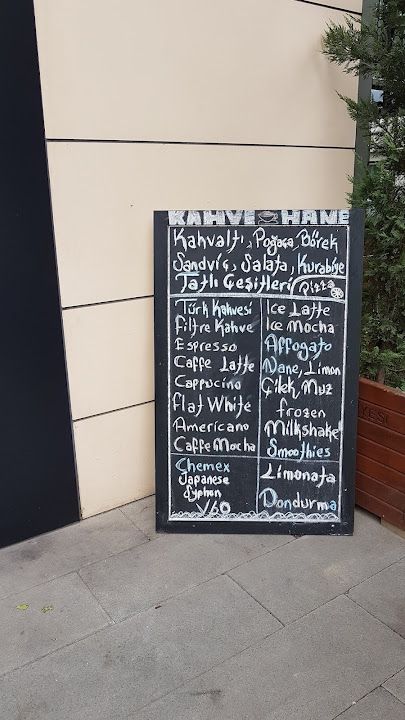 KAHVE HANE
Kahvaltı, Poğaça, Börek
Sandviç, Salata, Kurabiye
Tatlı Çeşitleri Pizza
Türk Kahvesi
Filtre Kahve
Espresso
Caffe Latte
Cappucino
Flat White
Americano
Caffe Mocha
Chemex
Japanese
Syphon
V60
Ice Latte
Ice Mocha
Affogato
Nane, Limon
Çilek, Muz
frozen
Milkshake
Smoothies
Limonata
Dondurma